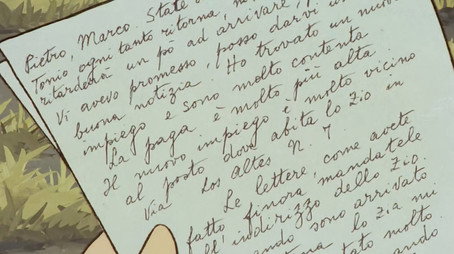 Pietro, Marco. State
Tonio ogni tanto ritorna,
ritardería un pó ad arrivare,
Vi avevo promesso, posso darvi
buona notizia. Ho trovato un nuovo
impiego e sono molto contenta
La paga è molto più alta
Il nuovo impiego è molto vicino
al posto dove abita lo zio in
Via Los Altes N. 7
Le lettere, come avete
fatto finora, mandatele
all'indirizzo dello zio.
sono arrivato
lo zio mi
molto